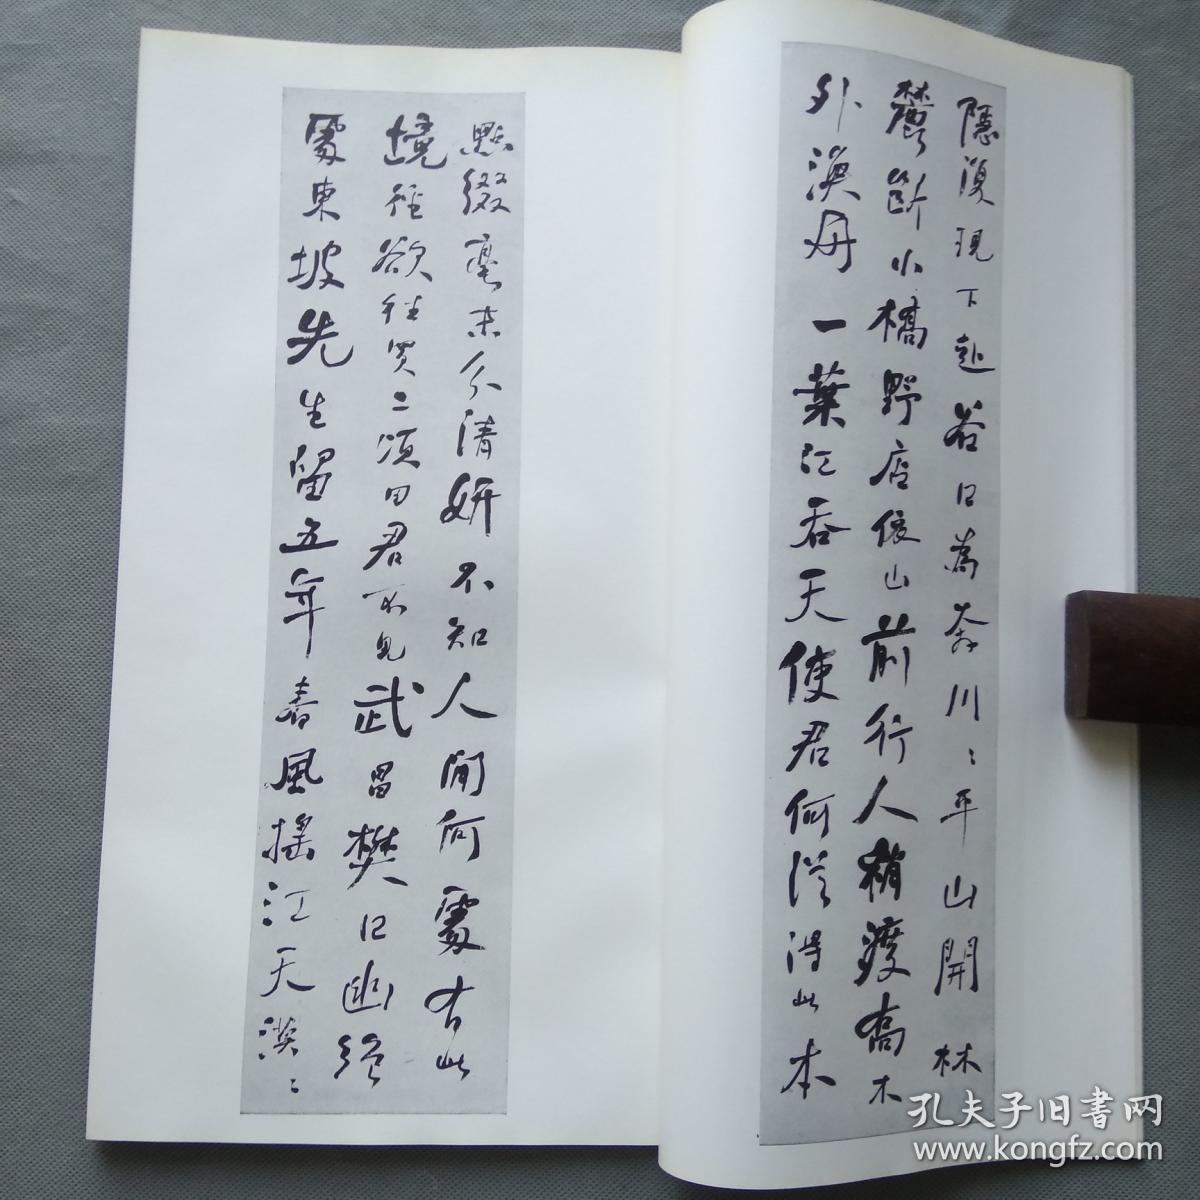 隱復現下赴谷口為奔川川平山開林
麓斷小橋野店依山前行人稍渡喬木
外漁舟一葉江吞天使君何從得此本
點綴毫末分清妍不知人間何處有此
境徑欲往買二頃田君不見武昌樊口幽絕
處東坡先生留五年春風搖江天漠漠
孔夫子旧书网
www.kongfz.com